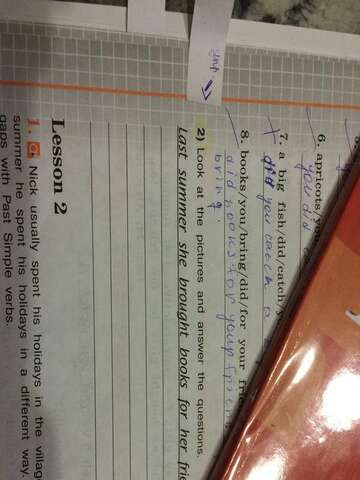 6. apricots/you
you did
7. a big fish/did/catch/y
did you catch a
8. books/you/bring/did/for your frie
did books for your frien
bring.
2) Look at the pictures and answer the questions.
Last summer she brought books for her frie
Lesson 2
1. Nick usually spent his holidays in the villag
summer he spent his holidays in a different way.
gaps with Past Simple verbs.